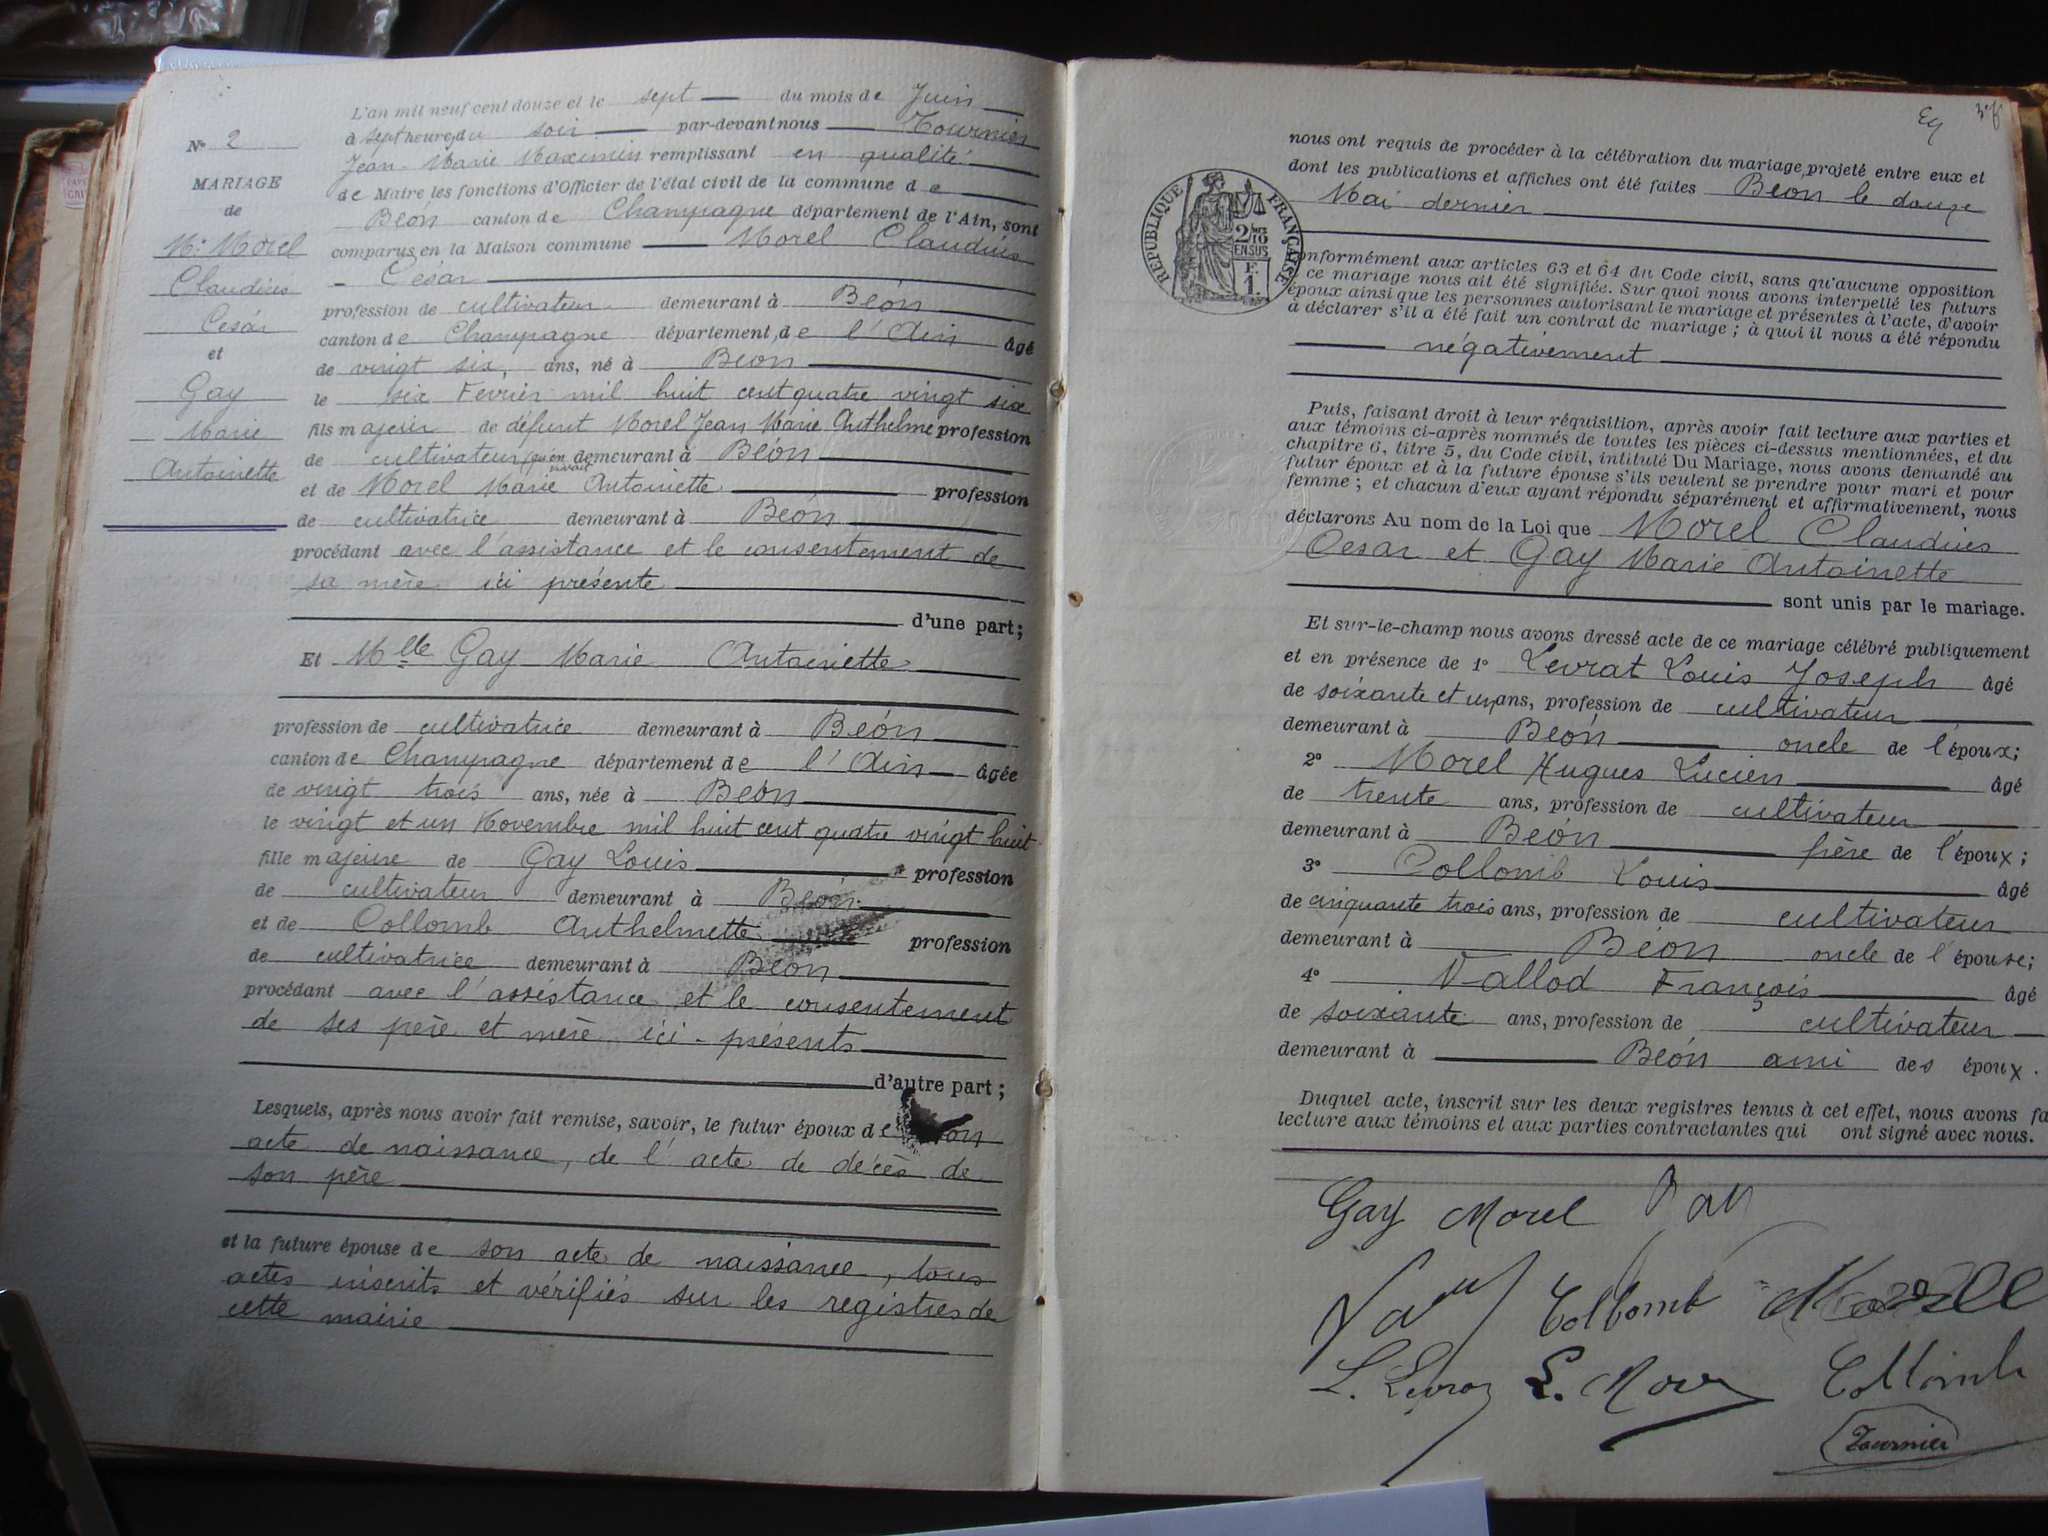 L'an mil neuf cent douze et le sept du mois de Juin
à sept heure du soir par-devant nous Tournier
Jean-Marie Maximin remplissant en qualité
de Maire les fonctions d'Officier de l'état civil de la commune de
Béon canton de Champagne département de l'Ain, sont
comparus en la Maison commune Morel Claudius
César
profession de cultivateur demeurant à Béon
canton de Champagne département, de l'Ain âgé
de vingt six, ans, né à Béon
le six Fevrier mil huit cent quatre vingt six
fils majeur de défunt Morel Jean Marie Anthelme profession
de cultivateur quand vivait demeurant à Béon
et de Morel Marie Antoinette profession
de cultivatrice demeurant à Béon
procédant avec l'assistance et le consentement de
sa mère ici présente
d'une part;
Et Mlle Gay Marie Antoinette
profession de cultivatrice demeurant à Béon
canton de Champagne département de l'Ain âgée
de vingt trois ans, née à Béon
le vingt et un Novembre mil huit cent quatre vingt huit
fille majeure de Gay Louis profession
de cultivateur demeurant à Béon
et de Collomb Anthelmette profession
de cultivatrice demeurant à Béon
procédant avec l'assistance et le consentement
de ses père et mère ici-présents
d'autre part;
Lesquels, après nous avoir fait remise, savoir, le futur époux de son
acte de naissance, de l'acte de décès de
son père
et la future épouse de son acte de naissance, tous
actes inscrits et vérifiés sur les registres de
cette mairie
No 2
MARIAGE
de
Mr Morel
Claudius
César
et
Gay
Marie
Antoinette
nous ont requis de procéder à la célébration du mariage projeté entre eux et
dont les publications et affiches ont été faites Béon le douze
Mai dernier
RÉPUBLIQUE FRANÇAISE
2/10
EN SUS
F.
1.
onformément aux articles 63 et 64 du Code civil, sans qu'aucune opposition
ce mariage nous ait été signifiée. Sur quoi nous avons interpellé les futurs
époux ainsi que les personnes autorisant le mariage et présentes à l'acte, d'avoir
à déclarer s'il a été fait un contrat de mariage; à quoi il nous a été répondu
négativement
Puis, faisant droit à leur réquisition, après avoir fait lecture aux parties et
aux témoins ci-après nommés de toutes les pièces ci-dessus mentionnées, et du
chapitre 6, titre 5, du Code civil, intitulé Du Mariage, nous avons demandé au
futur époux et à la future épouse s'ils veulent se prendre pour mari et pour
femme; et chacun d'eux ayant répondu séparément et affirmativement, nous
déclarons Au nom de la Loi que Morel Claudius
César et Gay Marie Antoinette
sont unis par le mariage.
Et sur-le-champ nous avons dressé acte de ce mariage célébré publiquement
et en présence de 1° Levrat Louis Joseph âgé
de soixante et un ans, profession de cultivateur
demeurant à Béon oncle de l'époux;
2° Morel Hugues Lucien âgé
de trente ans, profession de cultivateur
demeurant à Béon frère de l'époux;
3° Collomb Louis âgé
de cinquante trois ans, profession de cultivateur
demeurant à Béon oncle de l'épouse;
4° Vallod François âgé
de soixante ans, profession de cultivateur
demeurant à Béon ami des époux.
Duquel acte, inscrit sur les deux registres tenus à cet effet, nous avons fa
lecture aux témoins et aux parties contractantes qui ont signé avec nous.
Gay Morel
Collomb
L. Levrat L. Morel Collomb
Tournier